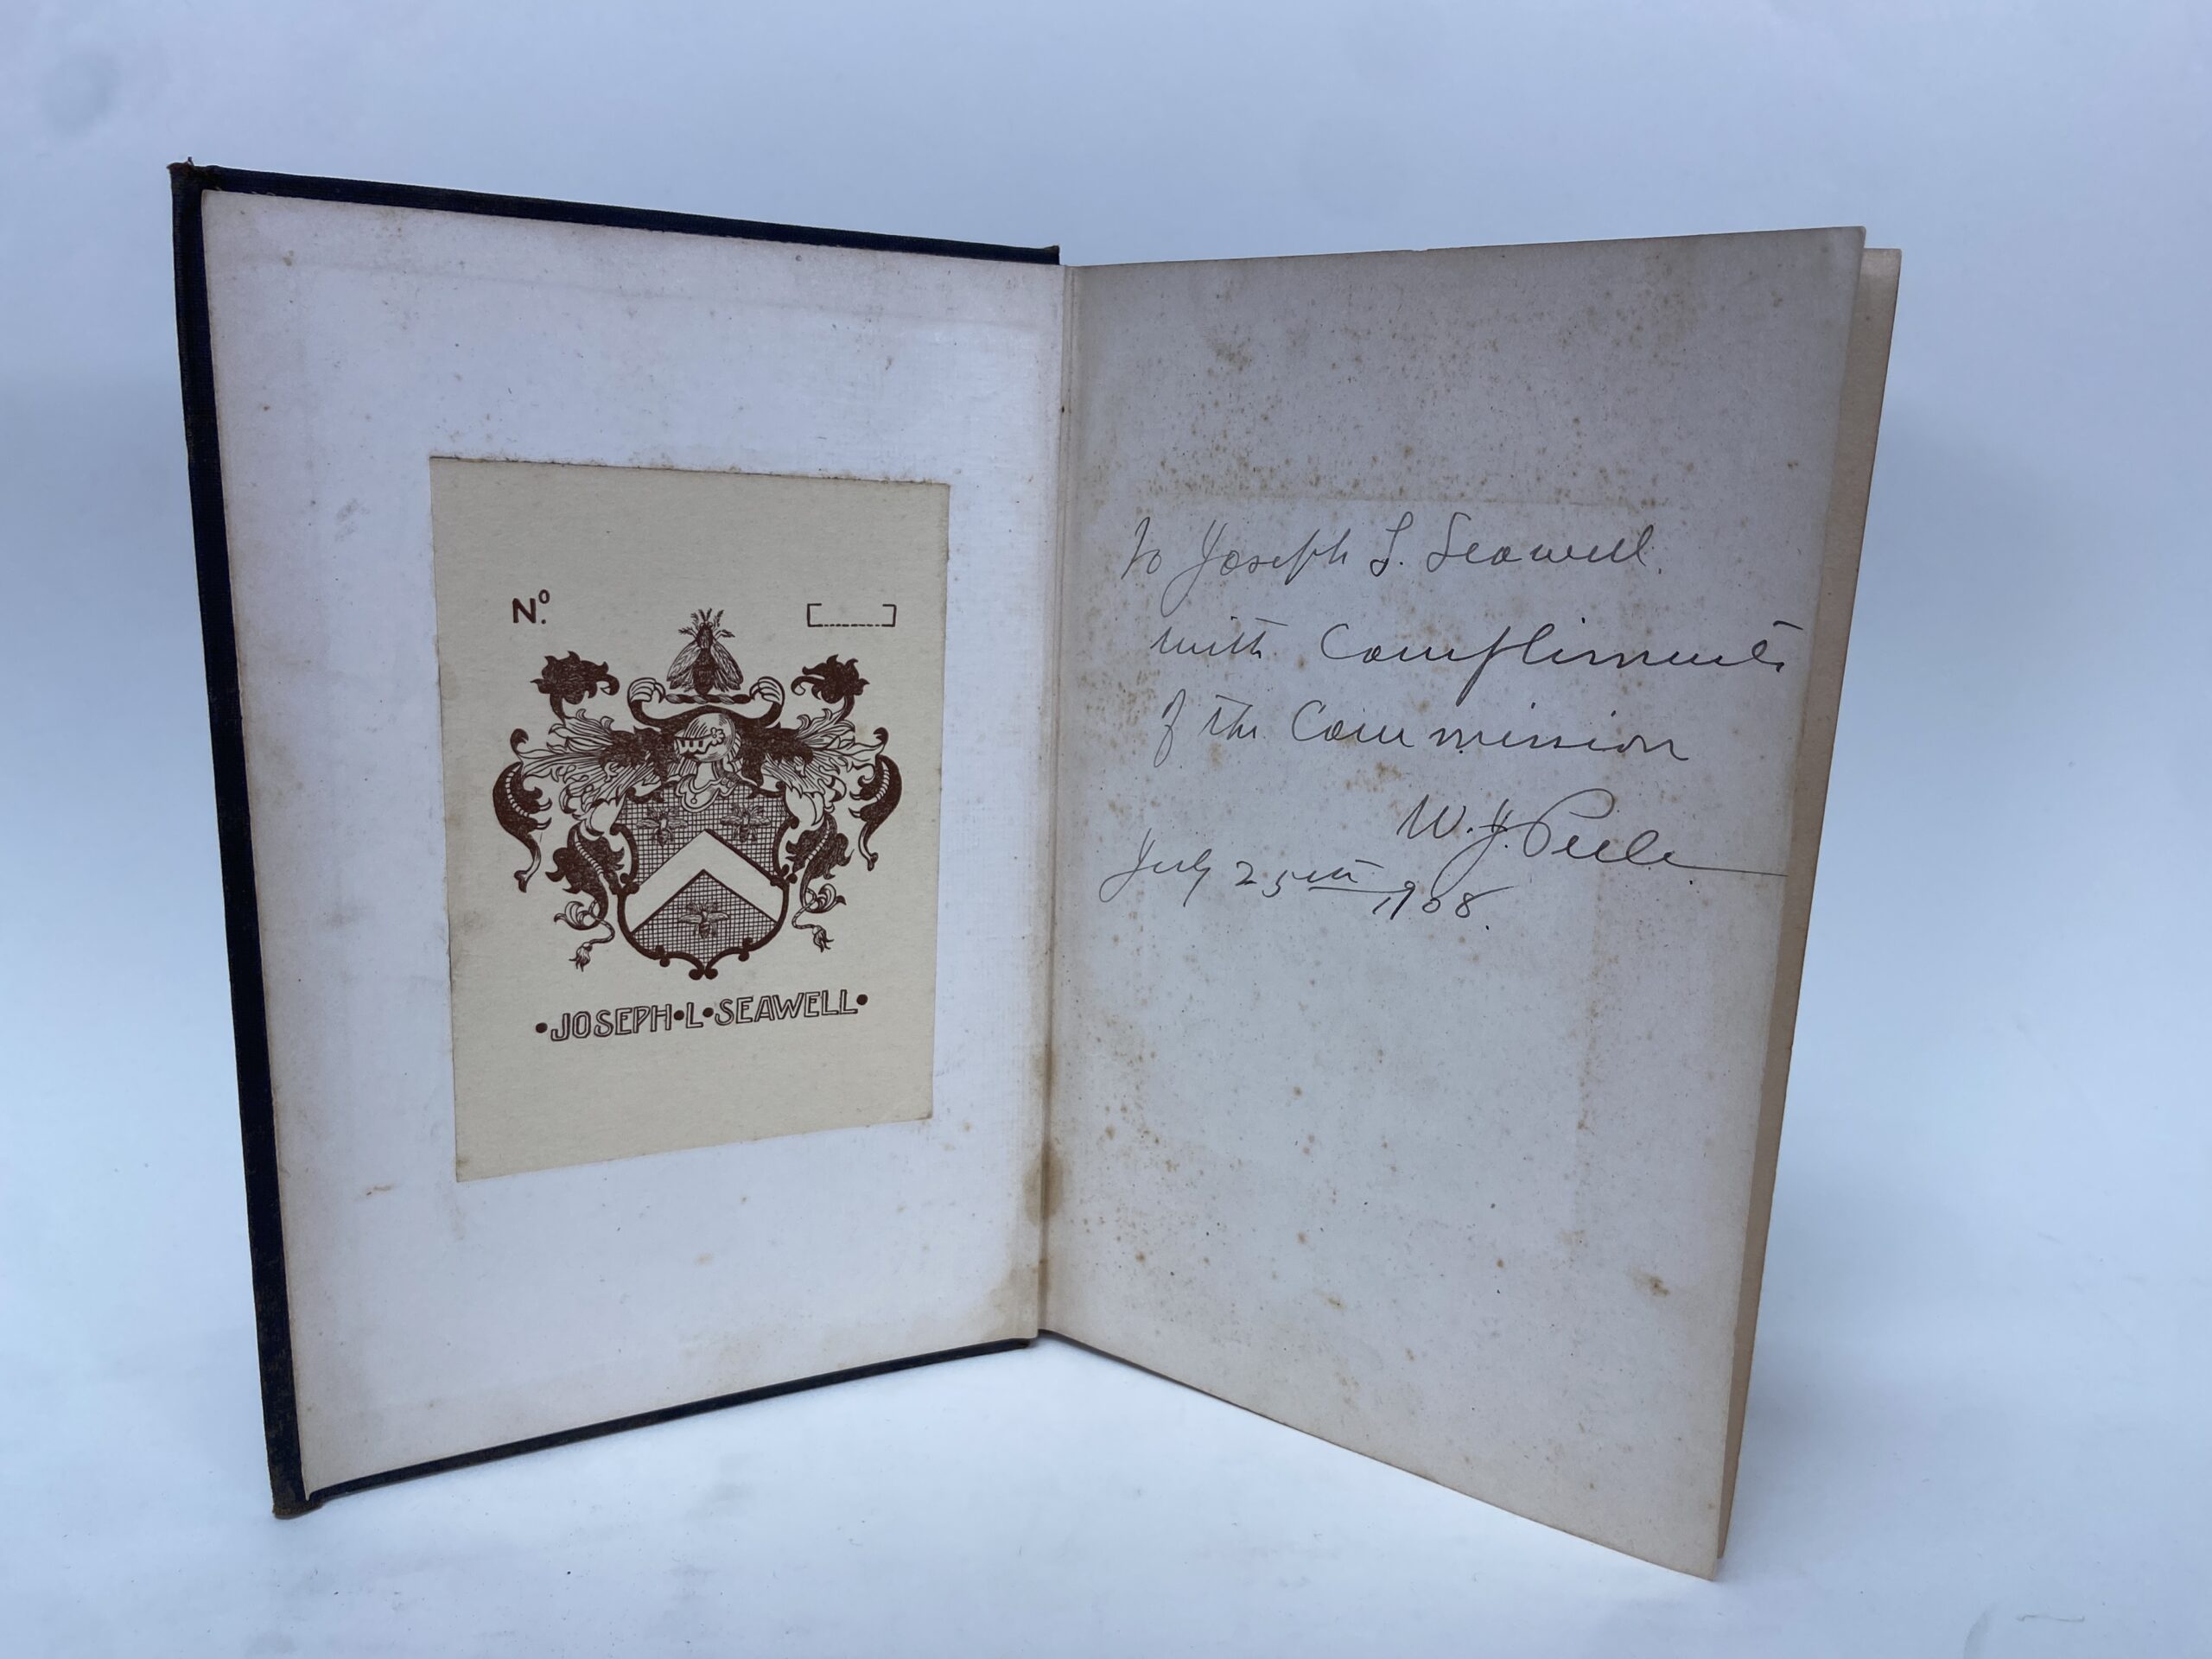 Nº.
•JOSEPH•L•SEAWELL•
To Joseph L. Seawell.
with Compliments
of the Commission
W. J. Peele
July 25th 1908.